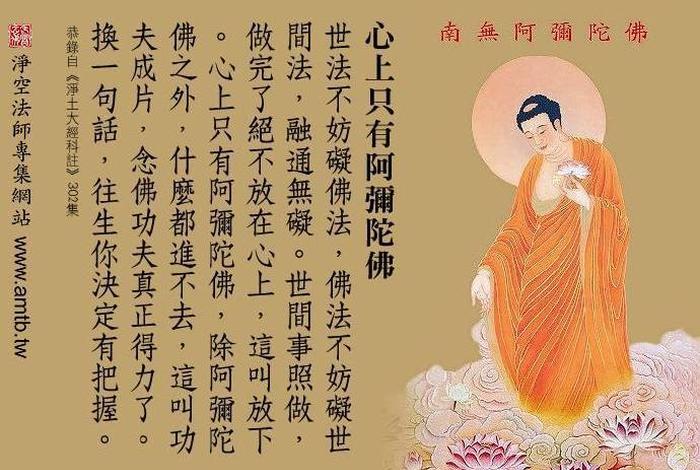 南無阿彌陀佛
心上只有阿彌陀佛
世法不妨礙佛法，佛法不妨礙世
間法，融通無礙。世間事照做，
做完了絕不放在心上，這叫放下
。心上只有阿彌陀佛，除阿彌陀
佛之外，什麼都進不去，這叫功
夫成片，念佛功夫真正得力了。
換一句話，往生你決定有把握。
恭錄自《淨土大經科註》302集
淨空法師專集網站 www.amtb.tw